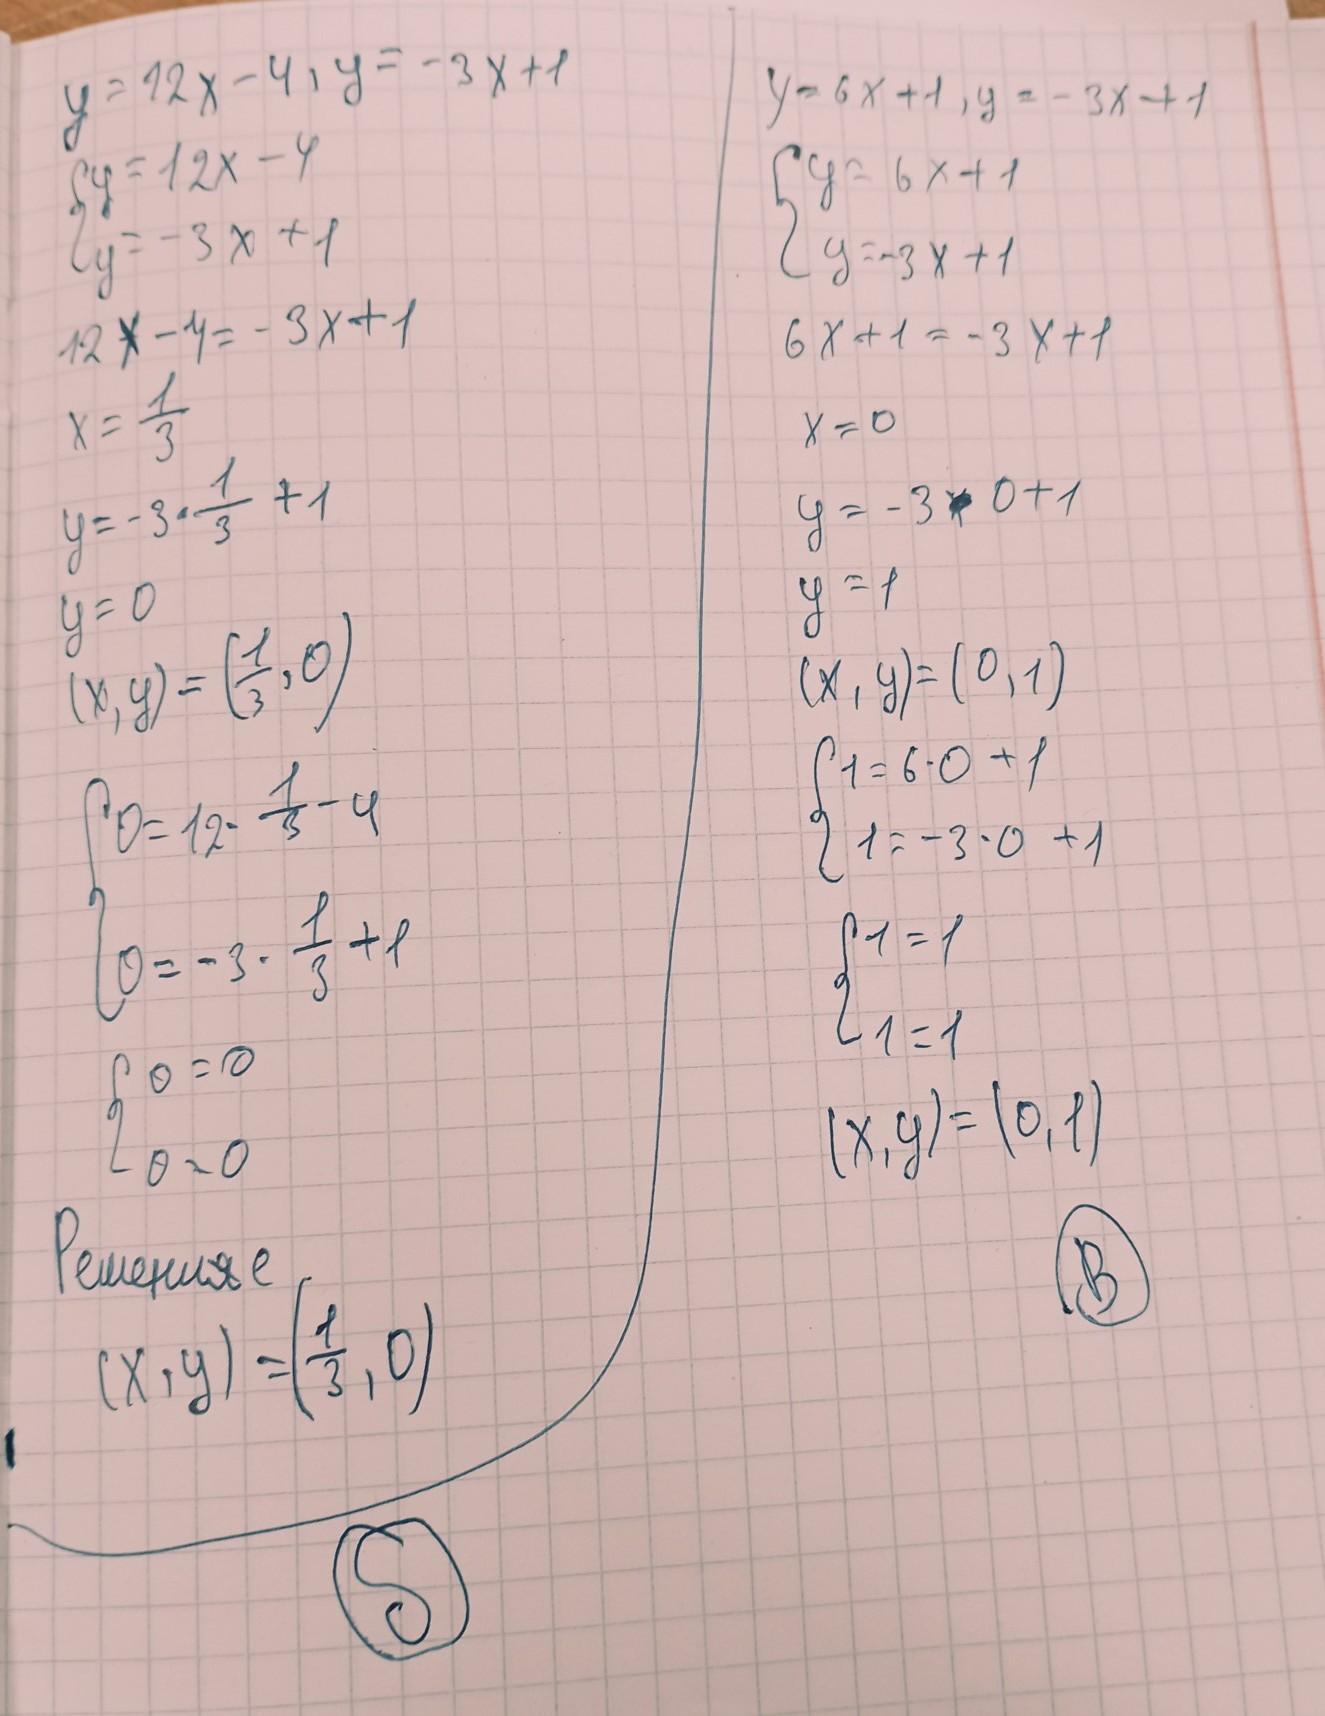 y = 12x - 4, y = -3x + 1
{ y = 12x - 4
{ y = -3x + 1
12x - 4 = -3x + 1
x = 1/3
y = -3 · 1/3 + 1
y = 0
(x, y) = (1/3, 0)
{ 0 = 12 · 1/3 - 4
{ 0 = -3 · 1/3 + 1
{ 0 = 0
{ 0 = 0
(x, y) = (1/3, 0)
б
y = 6x + 1, y = -3x + 1
{ y = 6x + 1
{ y = -3x + 1
6x + 1 = -3x + 1
x = 0
y = -3 · 0 + 1
y = 1
(x, y) = (0, 1)
{ 1 = 6 · 0 + 1
{ 1 = -3 · 0 + 1
{ 1 = 1
{ 1 = 1
(x, y) = (0, 1)
В